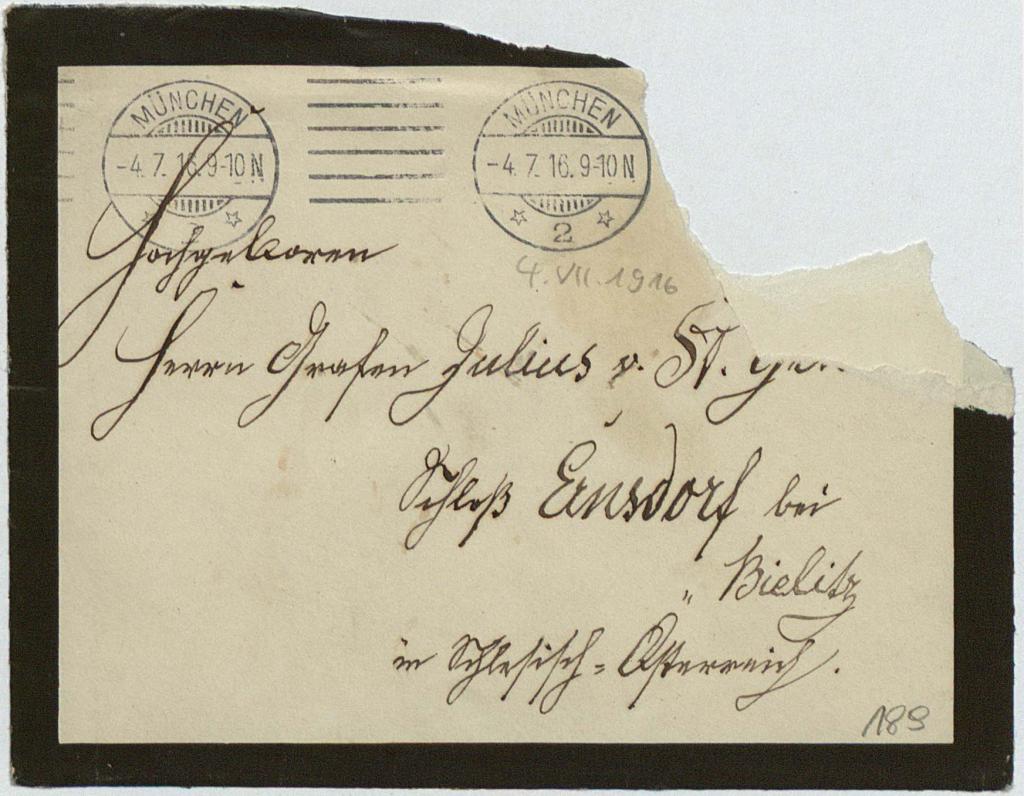 MÜNCHEN
-4. 7. 16. 9-10 N
MÜNCHEN
-4. 7. 16. 9-10 N
2
4. VII. 1916
Hochgeboren
Herrn Grafen Julius v. St.
Schloß Ernsdorf bei
" Bielitz
in Schlesisch=Österreich.
189